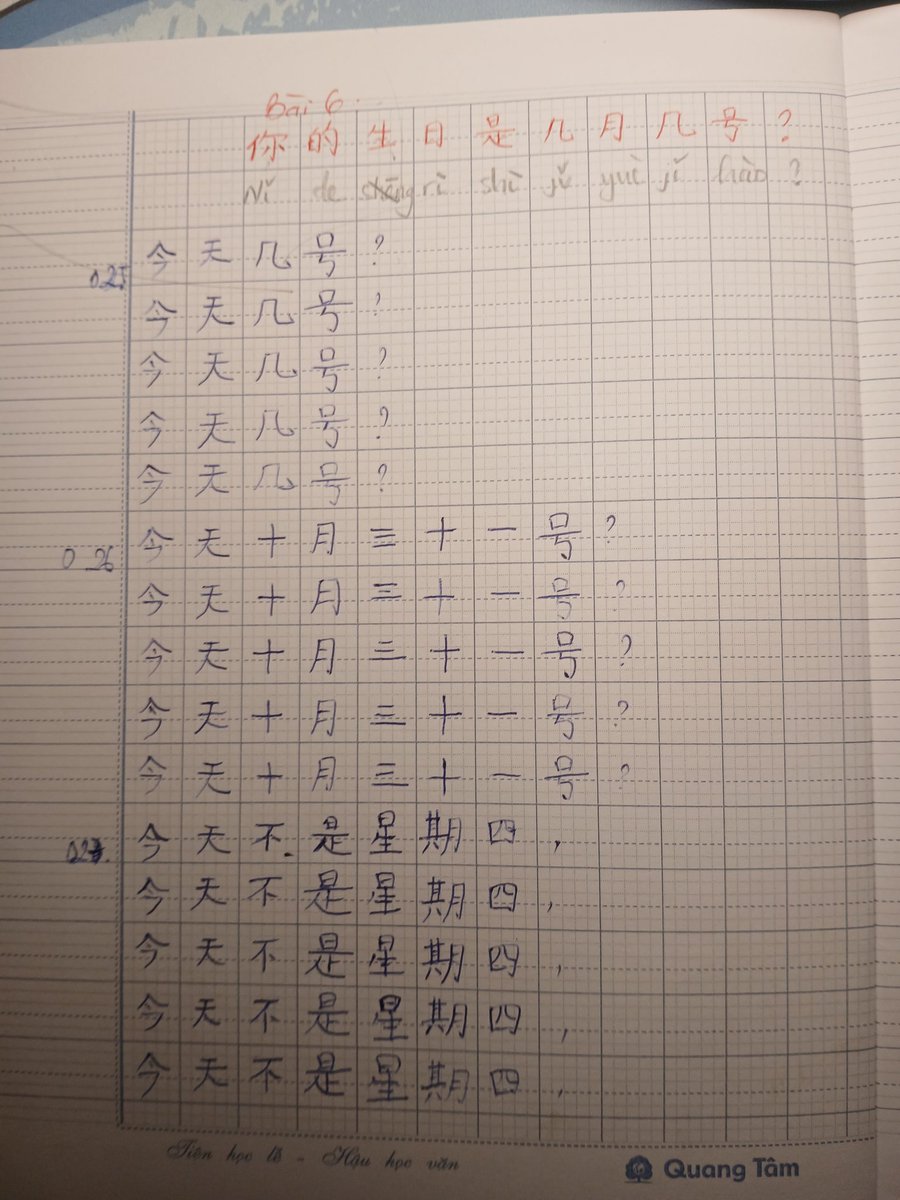 Bài 6.
你的生日是几月几号？
Nǐ de shēngrì shì jǐ yuè jǐ hào?
今天几号？
0.25
今天几号？
今天几号？
今天几号？
今天几号？
今天十月三十一号？
0.26
今天十月三十一号？
今天十月三十一号？
今天十月三十一号？
今天十月三十一号？
今天不是星期四，
今天不是星期四，
今天不是星期四，
今天不是星期四，
今天不是星期四，
Tiên học lễ - Hậu học văn
Quang Tâm